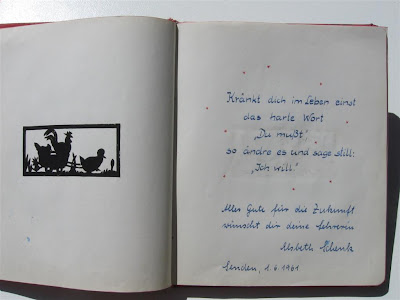 Kränkt dich im Leben einst
das harte Wort
„Du mußt",
so ändre es und sage still:
„Ich will."
Alles Gute für die Zukunft
wünscht dir deine Lehrerin
Elsbeth Schenk
Senden, 1.6.1961